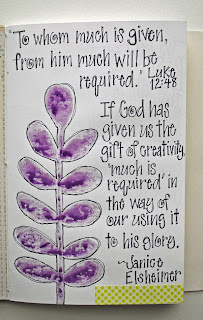 "To whom much is given,
from him much will be
required." Luke
12:48
If God has
given us the
gift of creativity,
"much is
required" in
the way of
our using it
to his glory.
~Janice
Elsheimer